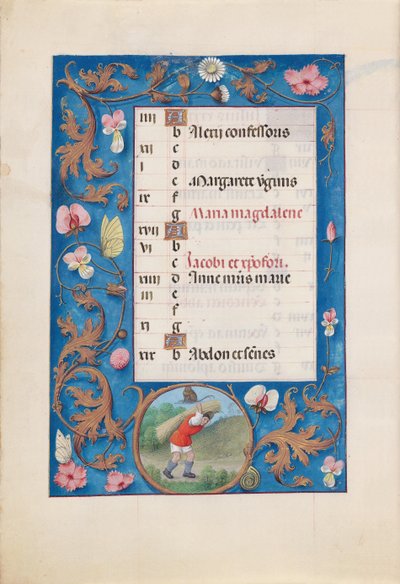 iiii A
b Alexii confessoris
xii c
i d
e Margarete v̾ginis
ix f
g Maria magdalene
xvii A
vi b
c Jacobi et xpofori.
xiiii d Anne mr̄is marie
iii e
f
xi g
A
xix b Abdon et senes